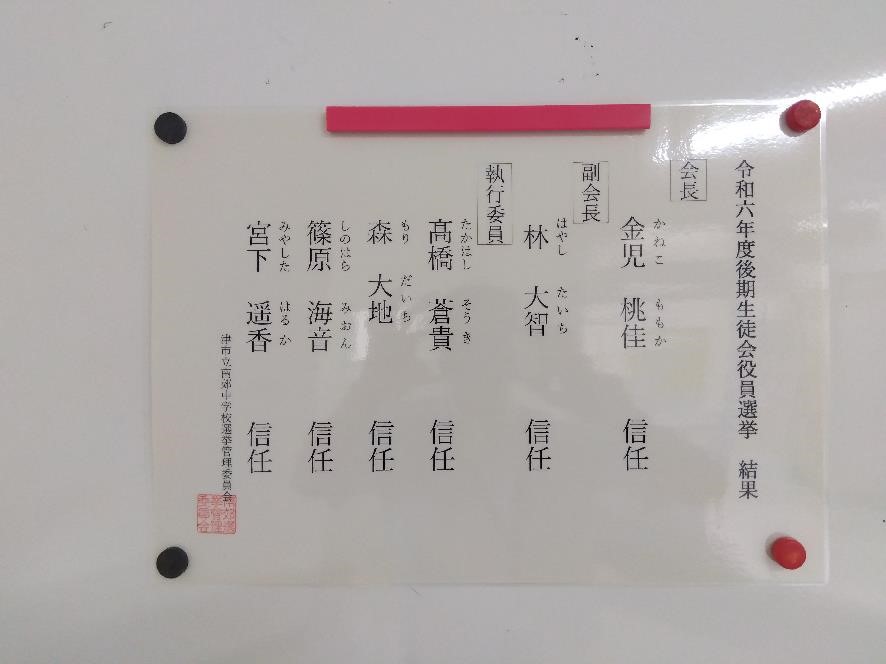 令和六年度後期生徒会役員選挙　結果
会長
かねこ　ももか
金児　桃佳　信任
副会長
はやし　たいち
林　大智　信任
執行委員
たかはし　そうき
髙橋　蒼貴　信任
もり　だいち
森　大地　信任
しのはら　みおん
篠原　海音　信任
みやした　はるか
宮下　遥香　信任
津市立南郊中学校選挙管理委員会